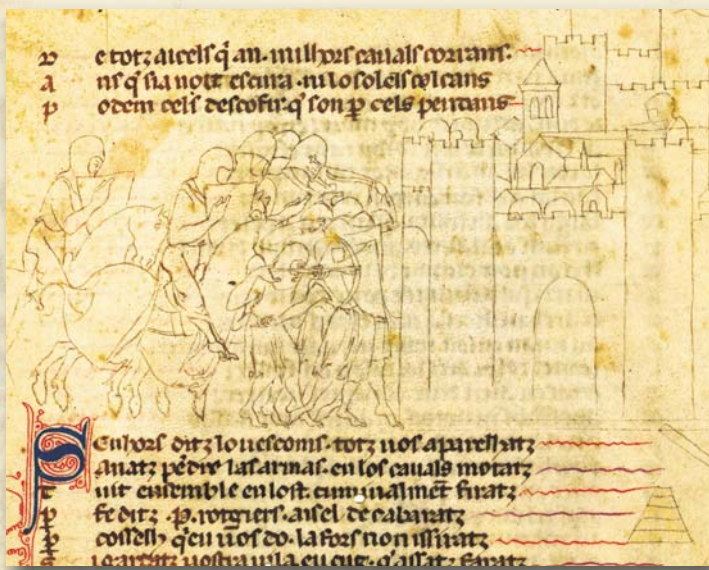 v e totz aicels q̄ an · milhors cauals corrans ·
a ns q̄ sia noit escura · ni lo soleils colcans
p odem cels descofir · q̄ son ꝑ cels pendans
Senhors ditz lo uescoms · totz uos aparelhatz
Anatz pēdre las armas · en los cauals mōtatz
t uit ensemble en lost · cuminalmēt firatz
p fe ditz · P · rotgiers · aisel de cabaratz
p cosselh q̄ eu uos do · la fors non issiratz
gardatz uostra uila eu cug · q̄ assatz faratz